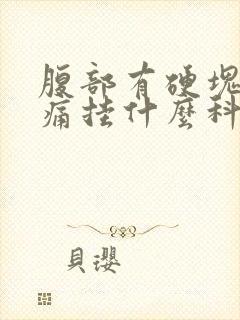 腹部有硬塊
痛挂什麼科
貝瓔